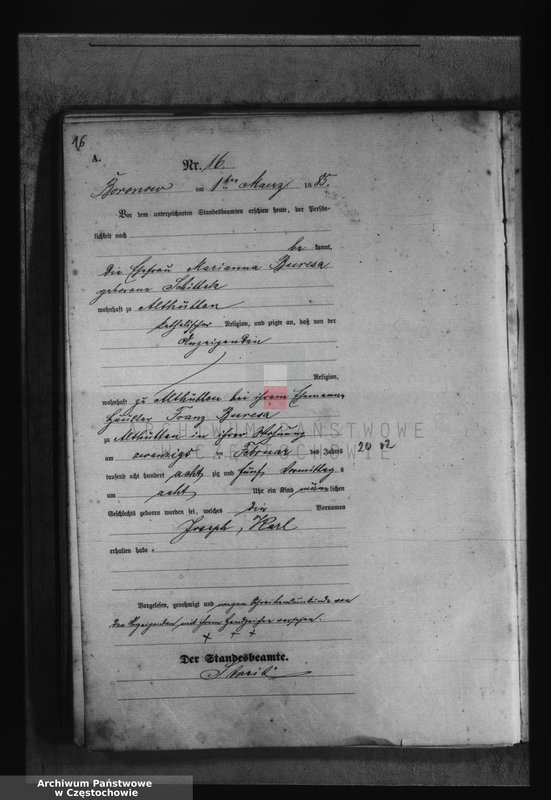 16
A.
Nr. 16.
Boronow am 1ten Maerz 1885.
Vor dem unterzeichneten Standesbeamten erschien heute, der Persön-
lichkeit nach
be kannt,
die Ehefrau Marianna Buresa
geborene
wohnhaft zu Althütten
katholischer Religion, und zeigte an, daß von der
Anzeigenden
Religion,
wohnhaft zu Althütten bei ihrem Ehemanne
Häusler Franz Buresa
zu Althütten in ihrer Wohnung
am zwanzigs ten Februar des Jahres 20 02
tausend acht hundert achtzig und fünf, Vormittag s
um acht Uhr ein Kind männlichen
Geschlechts geboren worden sei, welches die Vornamen
Joseph, Karl
erhalten habe.
Vorgelesen, genehmigt und wegen Schreibensunkunde von
der Anzeigenden mit ihrem Handzeichen versehen.
+ + +
Der Standesbeamte.
ARCHIWUM PAŃSTWOWE
W CZĘSTOCHOWIE
Archiwum Państwowe
w Częstochowie